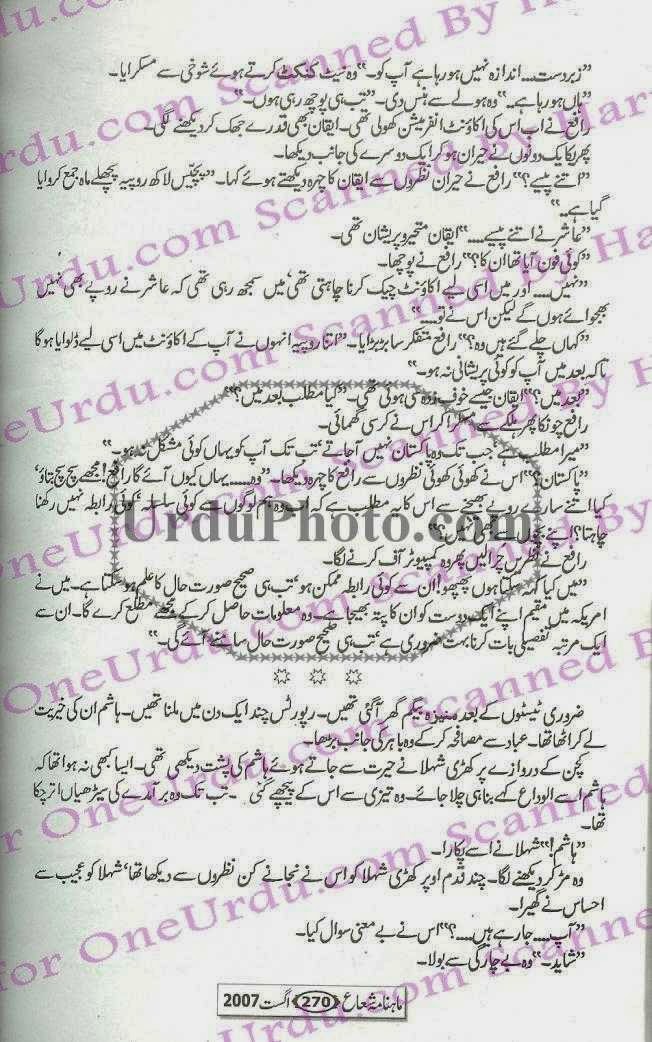 ”زبردست.... اندازہ نہیں ہو رہا ہے آپ کو۔“ وہ نیٹ کنکٹ کرتے ہوئے شوخی سے مسکرایا۔
”ہاں ہو رہا ہے..“ وہ ہولے سے ہنس دی۔ ”تب ہی پوچھ رہی ہوں۔“
رافع نے اب اس کی اکاؤنٹ انفریشن کھولی تھی۔ ایقان بھی قدرے جھک کر دیکھنے لگی۔
پھر یکایک دونوں نے حیران ہو کر ایک دوسرے کی جانب دیکھا۔
”اتنے پیسے؟“ رافع نے حیران نظروں سے ایقان کا چہرہ دیکھتے ہوئے کہا۔ ”پچیس لاکھ روپیہ پچھلے ماہ جمع کروایا
گیا ہے..“
”عاشر نے اتنے پیسے....“ ایقان متحیر و پریشان تھی۔
”کوئی فون آیا تھا ان کا؟“ رافع نے پوچھا۔
”نہیں.... اور میں اسی لیے اکاؤنٹ چیک کرنا چاہتی تھی، میں سمجھ رہی تھی کہ عاشر نے روپے بھی نہیں
بھجوائے ہوں گے لیکن اس نے تو...“
”کہاں چلے گئے ہیں وہ؟“ رافع متفکر سا بڑبڑایا۔ ”اتنا روپیہ انہوں نے آپ کے اکاؤنٹ میں اسی لیے ڈلوایا ہوگا
تاکہ بعد میں آپ کو کوئی پریشانی نہ ہو۔“
”بعد میں؟“ ایقان جیسے خوف زدہ سی ہوئی تھی۔ ”کیا مطلب بعد میں؟“
رافع چونکا پھر ہلکے سے مسکرا کر اس نے کرسی گھمائی۔
”میرا مطلب ہے جب تک وہ پاکستان نہیں آ جاتے، تب تک آپ کو یہاں کوئی مشکل نہ ہو۔“
”پاکستان؟“ اس نے کھوئی کھوئی نظروں سے رافع کا چہرہ دیکھا۔ ”وہ..... یہاں کیوں آئے گا رافع! مجھے سچ سچ بتاؤ،
کیا اتنے سارے روپے بھیجنے سے اس کا یہ مطلب ہے کہ اب وہ ہم لوگوں سے کوئی سلسلہ، کوئی رابطہ نہیں رکھنا
چاہتا؟ اپنے بچوں سے بھی نہیں؟“
رافع نے نظریں چرا لیں پھر وہ کمپیوٹر آف کرنے لگا۔
”میں کیا کہہ سکتا ہوں پھپھو! ان سے کوئی رابطہ ممکن ہو، تب ہی صحیح صورت حال کا علم ہو سکتا ہے۔ میں نے
امریکہ میں مقیم اپنے ایک دوست کو ان کا پتہ بھیجا ہے۔ وہ معلومات حاصل کر کے مجھے مطلع کرے گا۔ ان سے
ایک مرتبہ تفصیلی بات کرنا بہت ضروری ہے، تب ہی صحیح صورت حال سامنے آئے گی۔“
ضروری ٹیسٹوں کے بعد منیزہ بیگم گھر آگئی تھیں۔ رپورٹس چند ایک دن میں ملنا تھیں۔ ہاشم ان کی خیریت
لے کر اٹھا تھا۔ عباد سے مصافحہ کر کے وہ باہر کی جانب بڑھا۔
کچن کے دروازے پر کھڑی شہلا نے حیرت سے جاتے ہوئے ہاشم کی پشت دیکھی تھی۔ ایسا کبھی نہ ہوا تھا کہ
ہاشم اسے الوداع کہے بنا ہی چلا جائے۔ وہ تیزی سے اس کے پیچھے گئی۔ تب تک وہ برآمدے کی سیڑھیاں اتر چکا
تھا۔
”ہاشم!“ شہلا نے اسے پکارا۔
وہ مڑ کر دیکھنے لگا۔ چند قدم اوپر کھڑی شہلا کو اس نے نجانے کن نظروں سے دیکھا تھا، شہلا کو عجیب سے
احساس نے گھیرا۔
”آپ.... جا رہے ہیں....؟“ اس نے بے معنی سوال کیا۔
”شاید۔“ وہ بے چارگی سے بولا۔
ماہنامہ شعاع 270 اگست 2007
UrduPhoto.com
for OneUrdu.com Scanned By